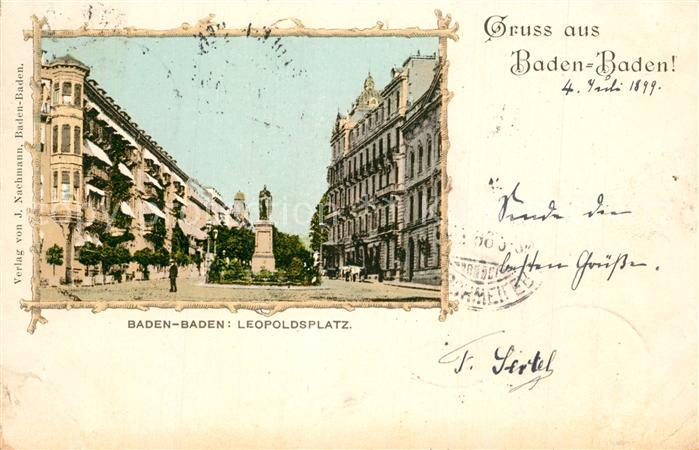 Gruss aus
Baden=Baden!
4. Juli 1899.
Verlag von J. Nachmann, Baden-Baden.
Sende die
besten Grüße.
BADEN-BADEN: LEOPOLDSPLATZ.